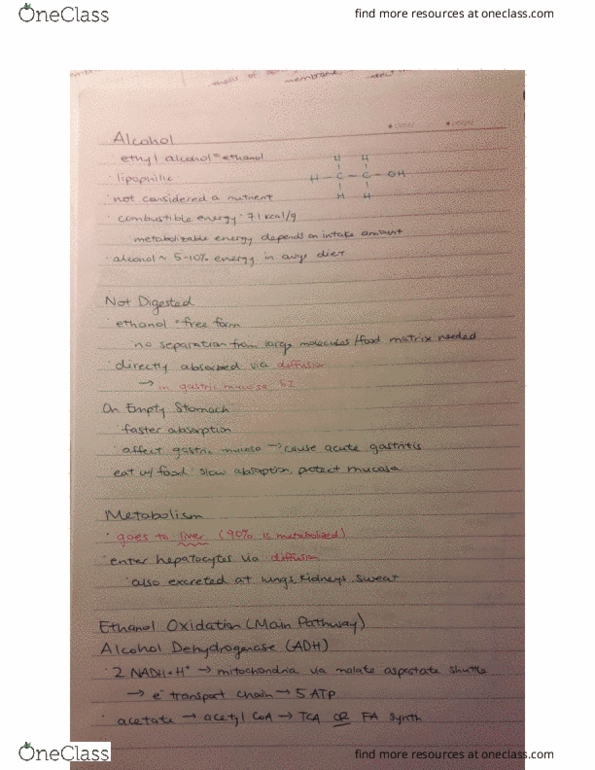 OneClass find more resources at oneclass.com
membrane
Alcohol
· ethyl alcohol = ethanol
· lipophilic
· not considered a nutrient
· combustible energy · 7.1 kcal/g
metabolizable energy depends on intake amount
· alcohol ~ 5-10% energy in avg diet
H H
H - C - C - OH
H H
Not Digested
· ethanol = free form
no separation from large molecules / food matrix needed
· directly absorbed via diffusion
→ in gastric mucosa, SI
On Empty Stomach
· faster absorption
· affect gastric mucosa → cause acute gastritis
eat w/ food: slow absorption, protect mucosa
Metabolism
· goes to liver (90% is metabolized)
· enter hepatocytes via diffusion
· also excreted at lungs, kidneys, sweat
Ethanol Oxidation (Main Pathway)
Alcohol Dehydrogenase (ADH)
· 2 NADH + H⁺ → mitochondria via malate aspartate shuttle
→ e⁻ transport chain → 5 ATP
· acetate → acetyl CoA → TCA OR FA synth
OneClass find more resources at oneclass.com